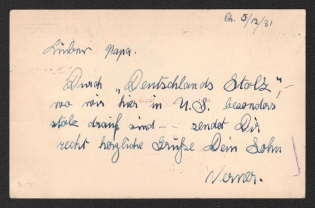 Ch. 5/12/31
Lieber Papa.
Durch „Deutschlands Stolz",
wo wir hier in U.S. besonders
stolz drauf sind -- sendet Dir
recht herzliche Grüße Dein Sohn
Werner.